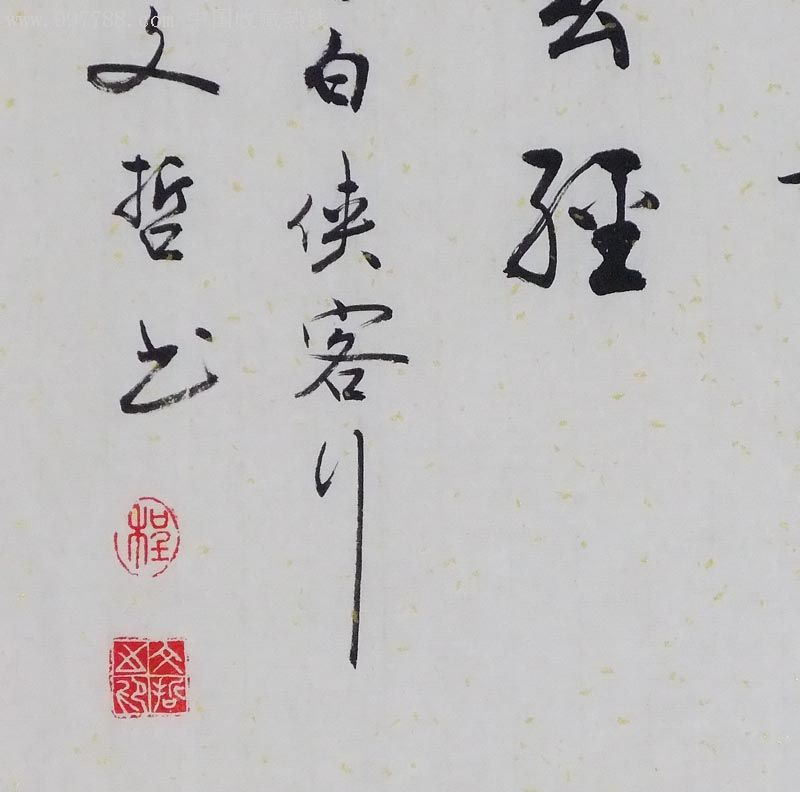 玄經
白俠客行
文哲书
程
文哲之印
www.997788.com 中国收藏热线